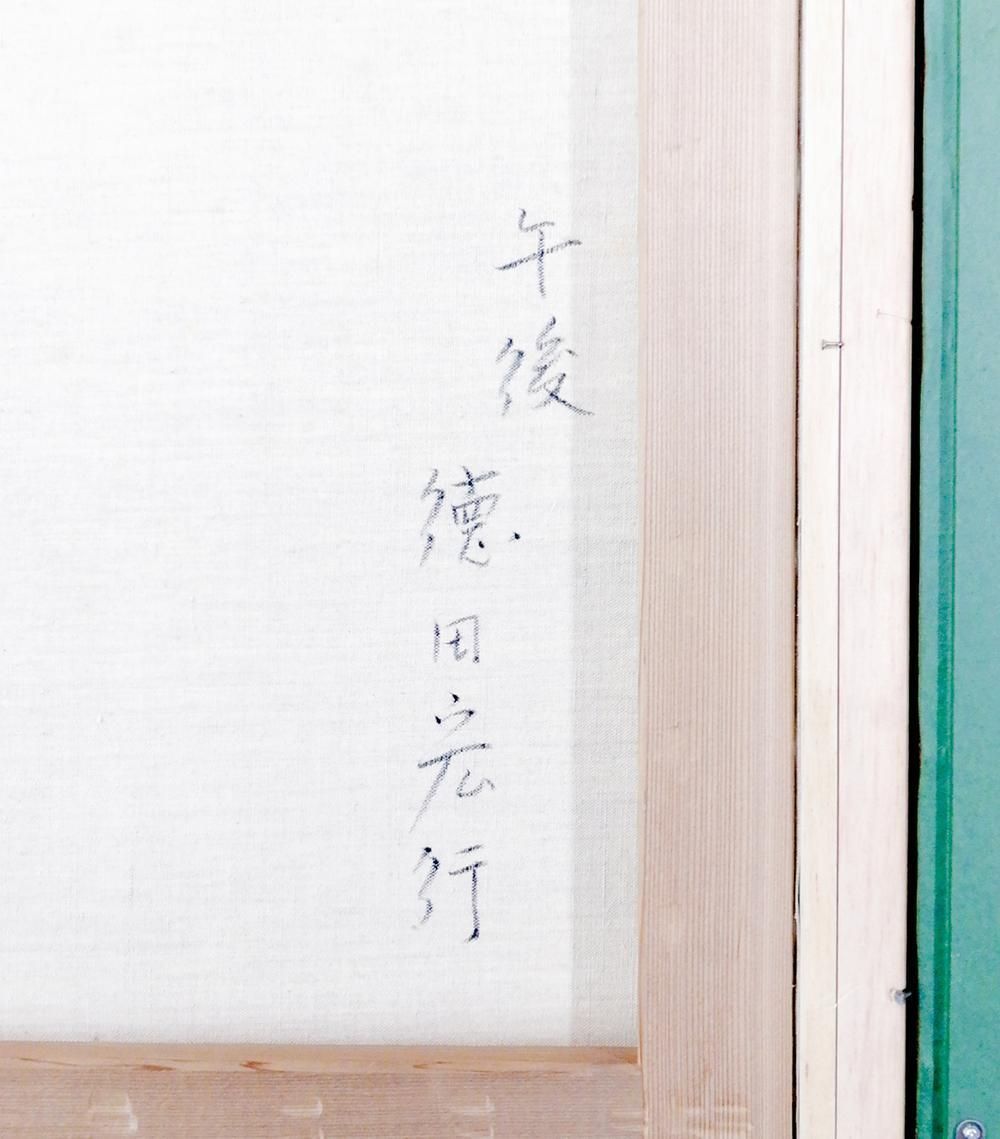 午後
德田宏行